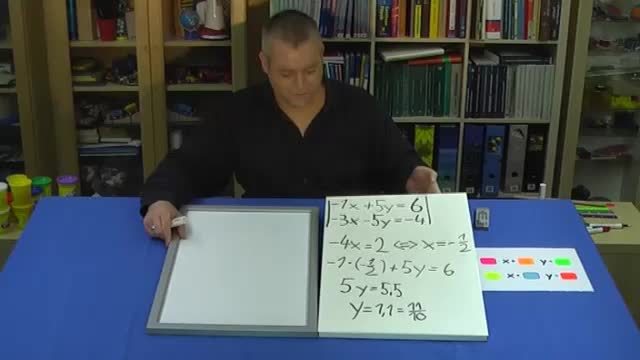 -1x + 5y = 6
-3x - 5y = -4
-4x = 2 ⇔ x = -1/2
-1·(-1/2) + 5y = 6
5y = 5,5
y = 1,1 = 11/10
x = y =
x = y =